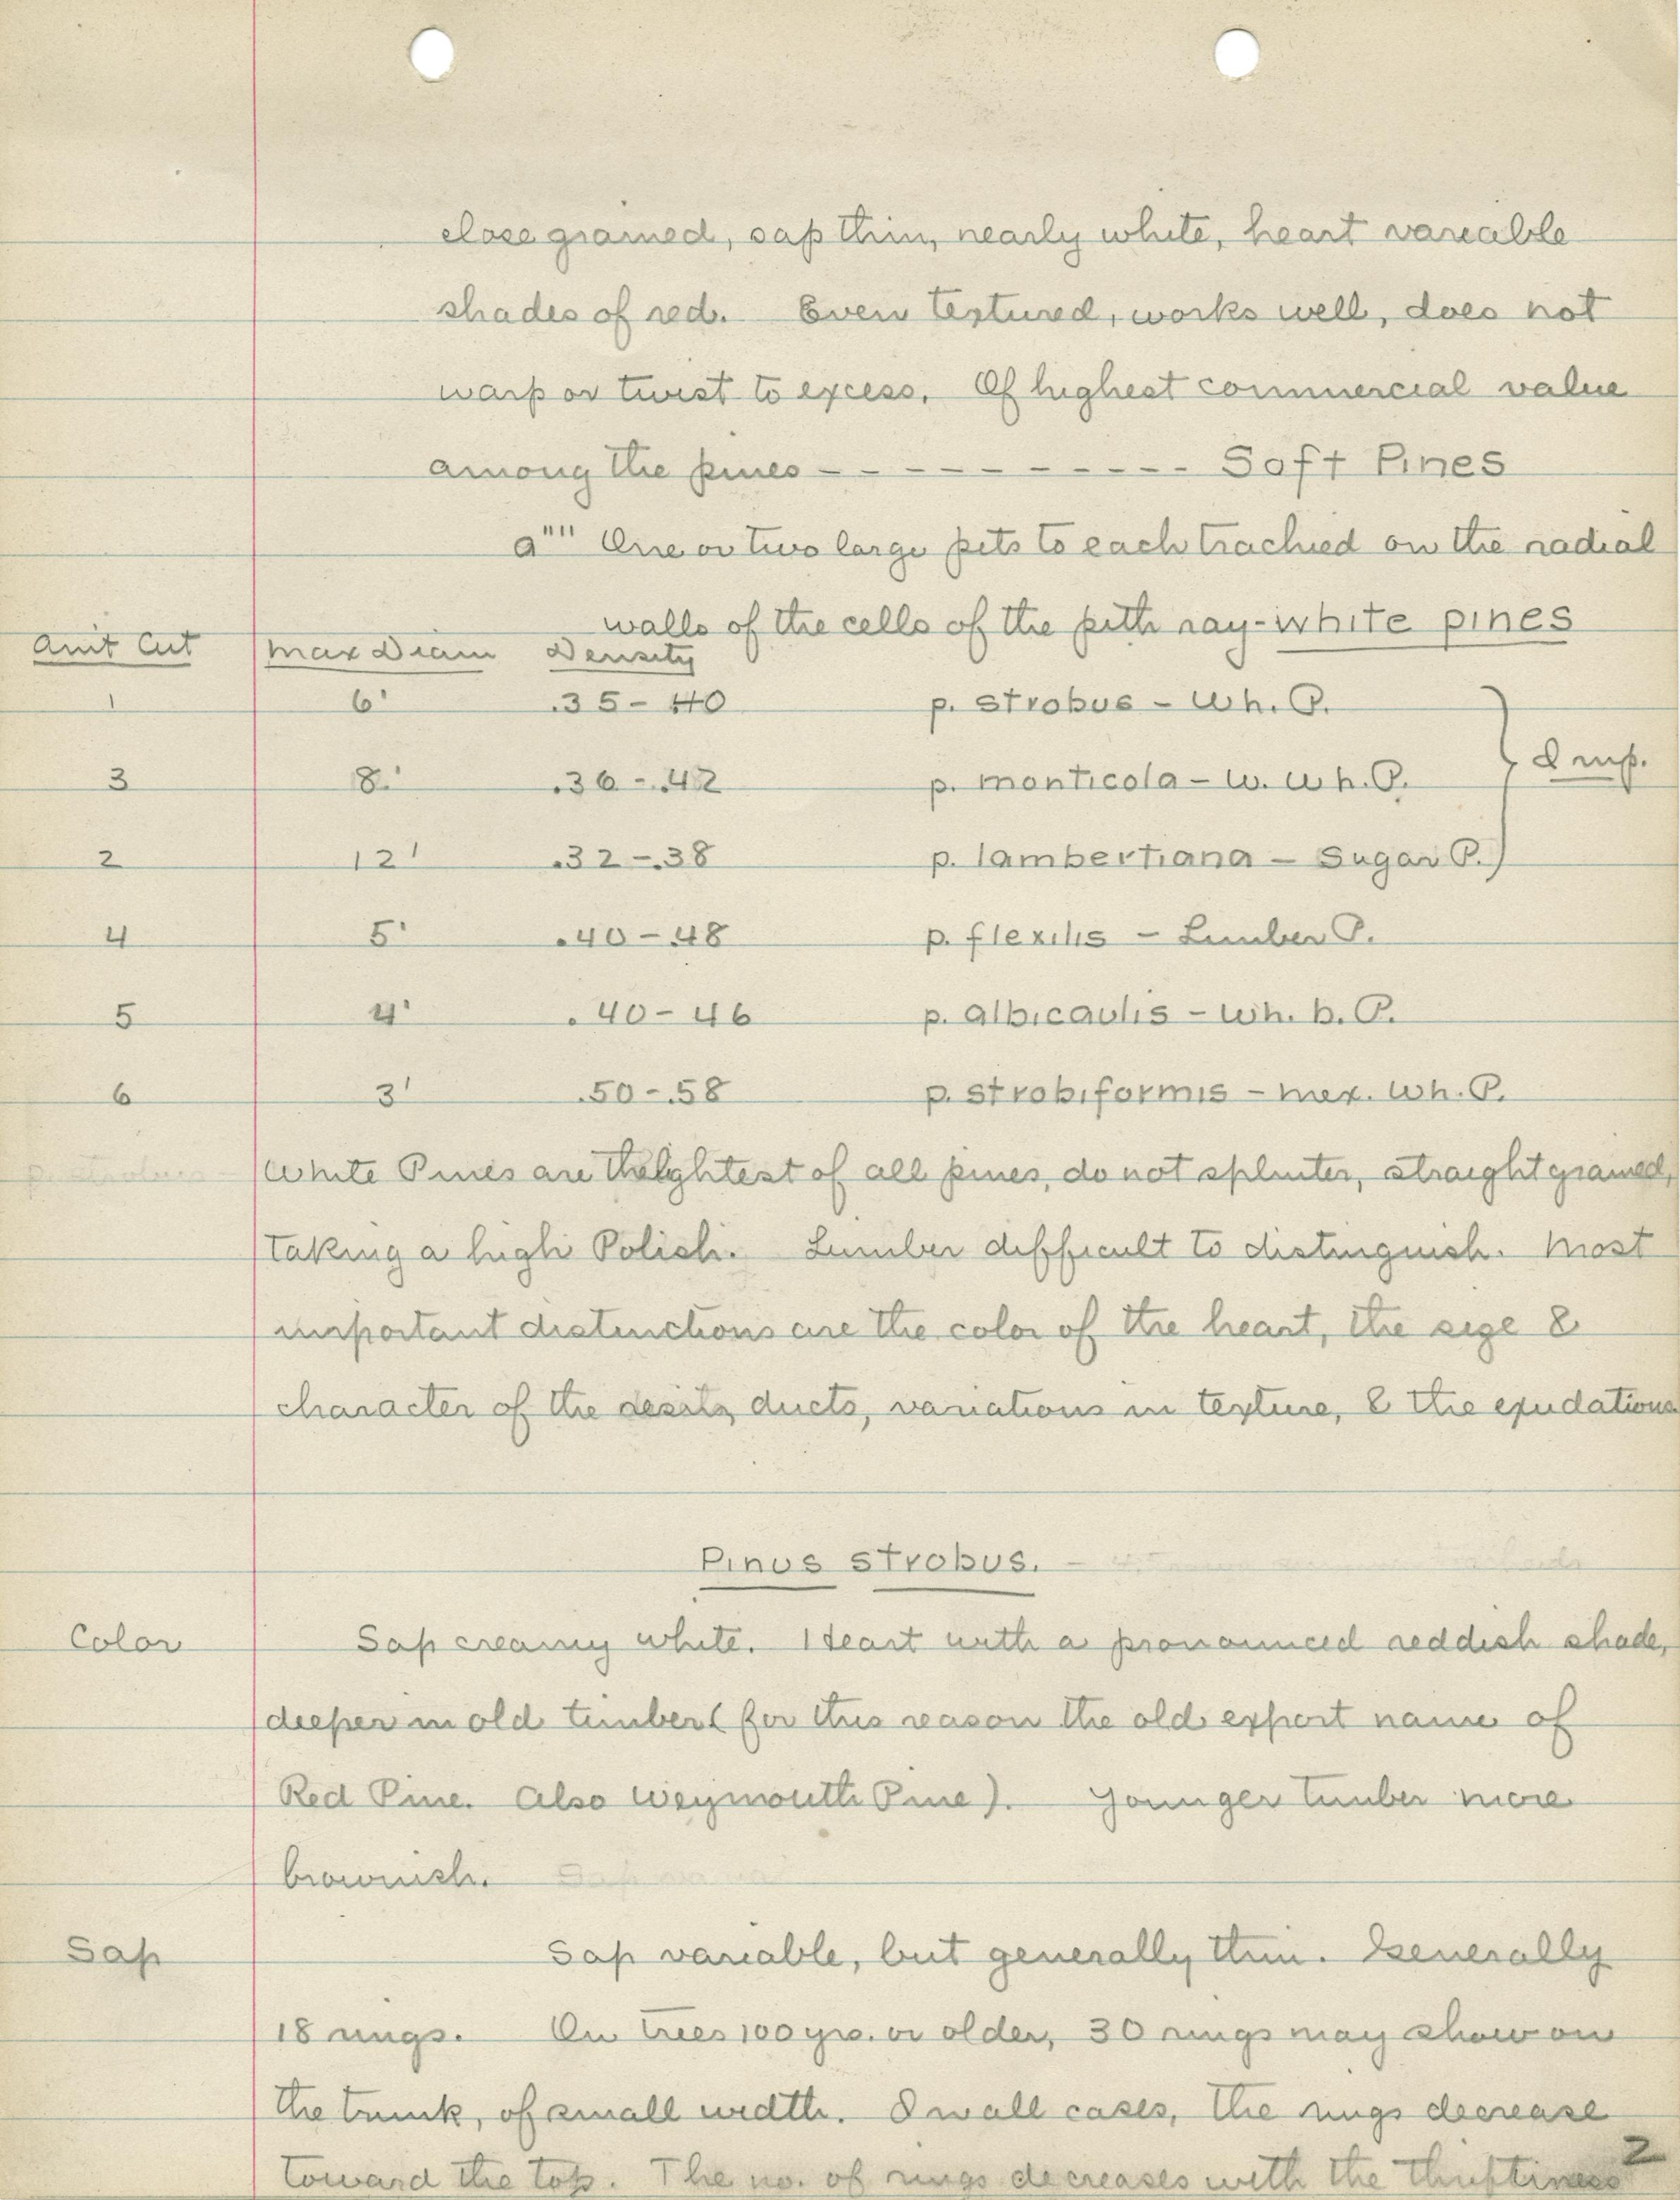 close grained, sap thin, nearly white, heart variable
shades of red. Even textured, works well, does not
warp or twist to excess. Of highest commercial value
among the pines - - - - - - - - - - Soft Pines
a"" One or two large pits to each trachied on the radial
walls of the cells of the pith ray - white pines
Amt Cut Max Diam Density
1 6' .35-40 p. strobus - Wh. P.
3 8' .36-.42 p. monticola - W. Wh. P. } Imp.
2 12' .32-.38 p. lambertiana - Sugar P.
4 5' .40-.48 p. flexilis - Limber P.
5 4' .40-46 p. albicaulis - Wh. b. P.
6 3' .50-.58 p. strobiformis - Mex. Wh. P.
p. strobus White Pines are the lightest of all pines, do not splinter, straight grained,
taking a high Polish. Lumber difficult to distinguish. Most
important distinctions are the color of the heart, the size &
character of the ducts, variations in texture, & the exudations
Pinus strobus. -
Color Sap creamy white. Heart with a pronounced reddish shade,
deeper in old timber (for this reason the old export name of
Red Pine. Also Weymouth Pine). Younger timber more
brownish.
Sap Sap variable, but generally thin. Generally
18 rings. On trees 100 yrs. or older, 30 rings may show on
the trunk, of small width. In all cases, the rings decrease
toward the top. The no. of rings decreases with the thriftiness
2